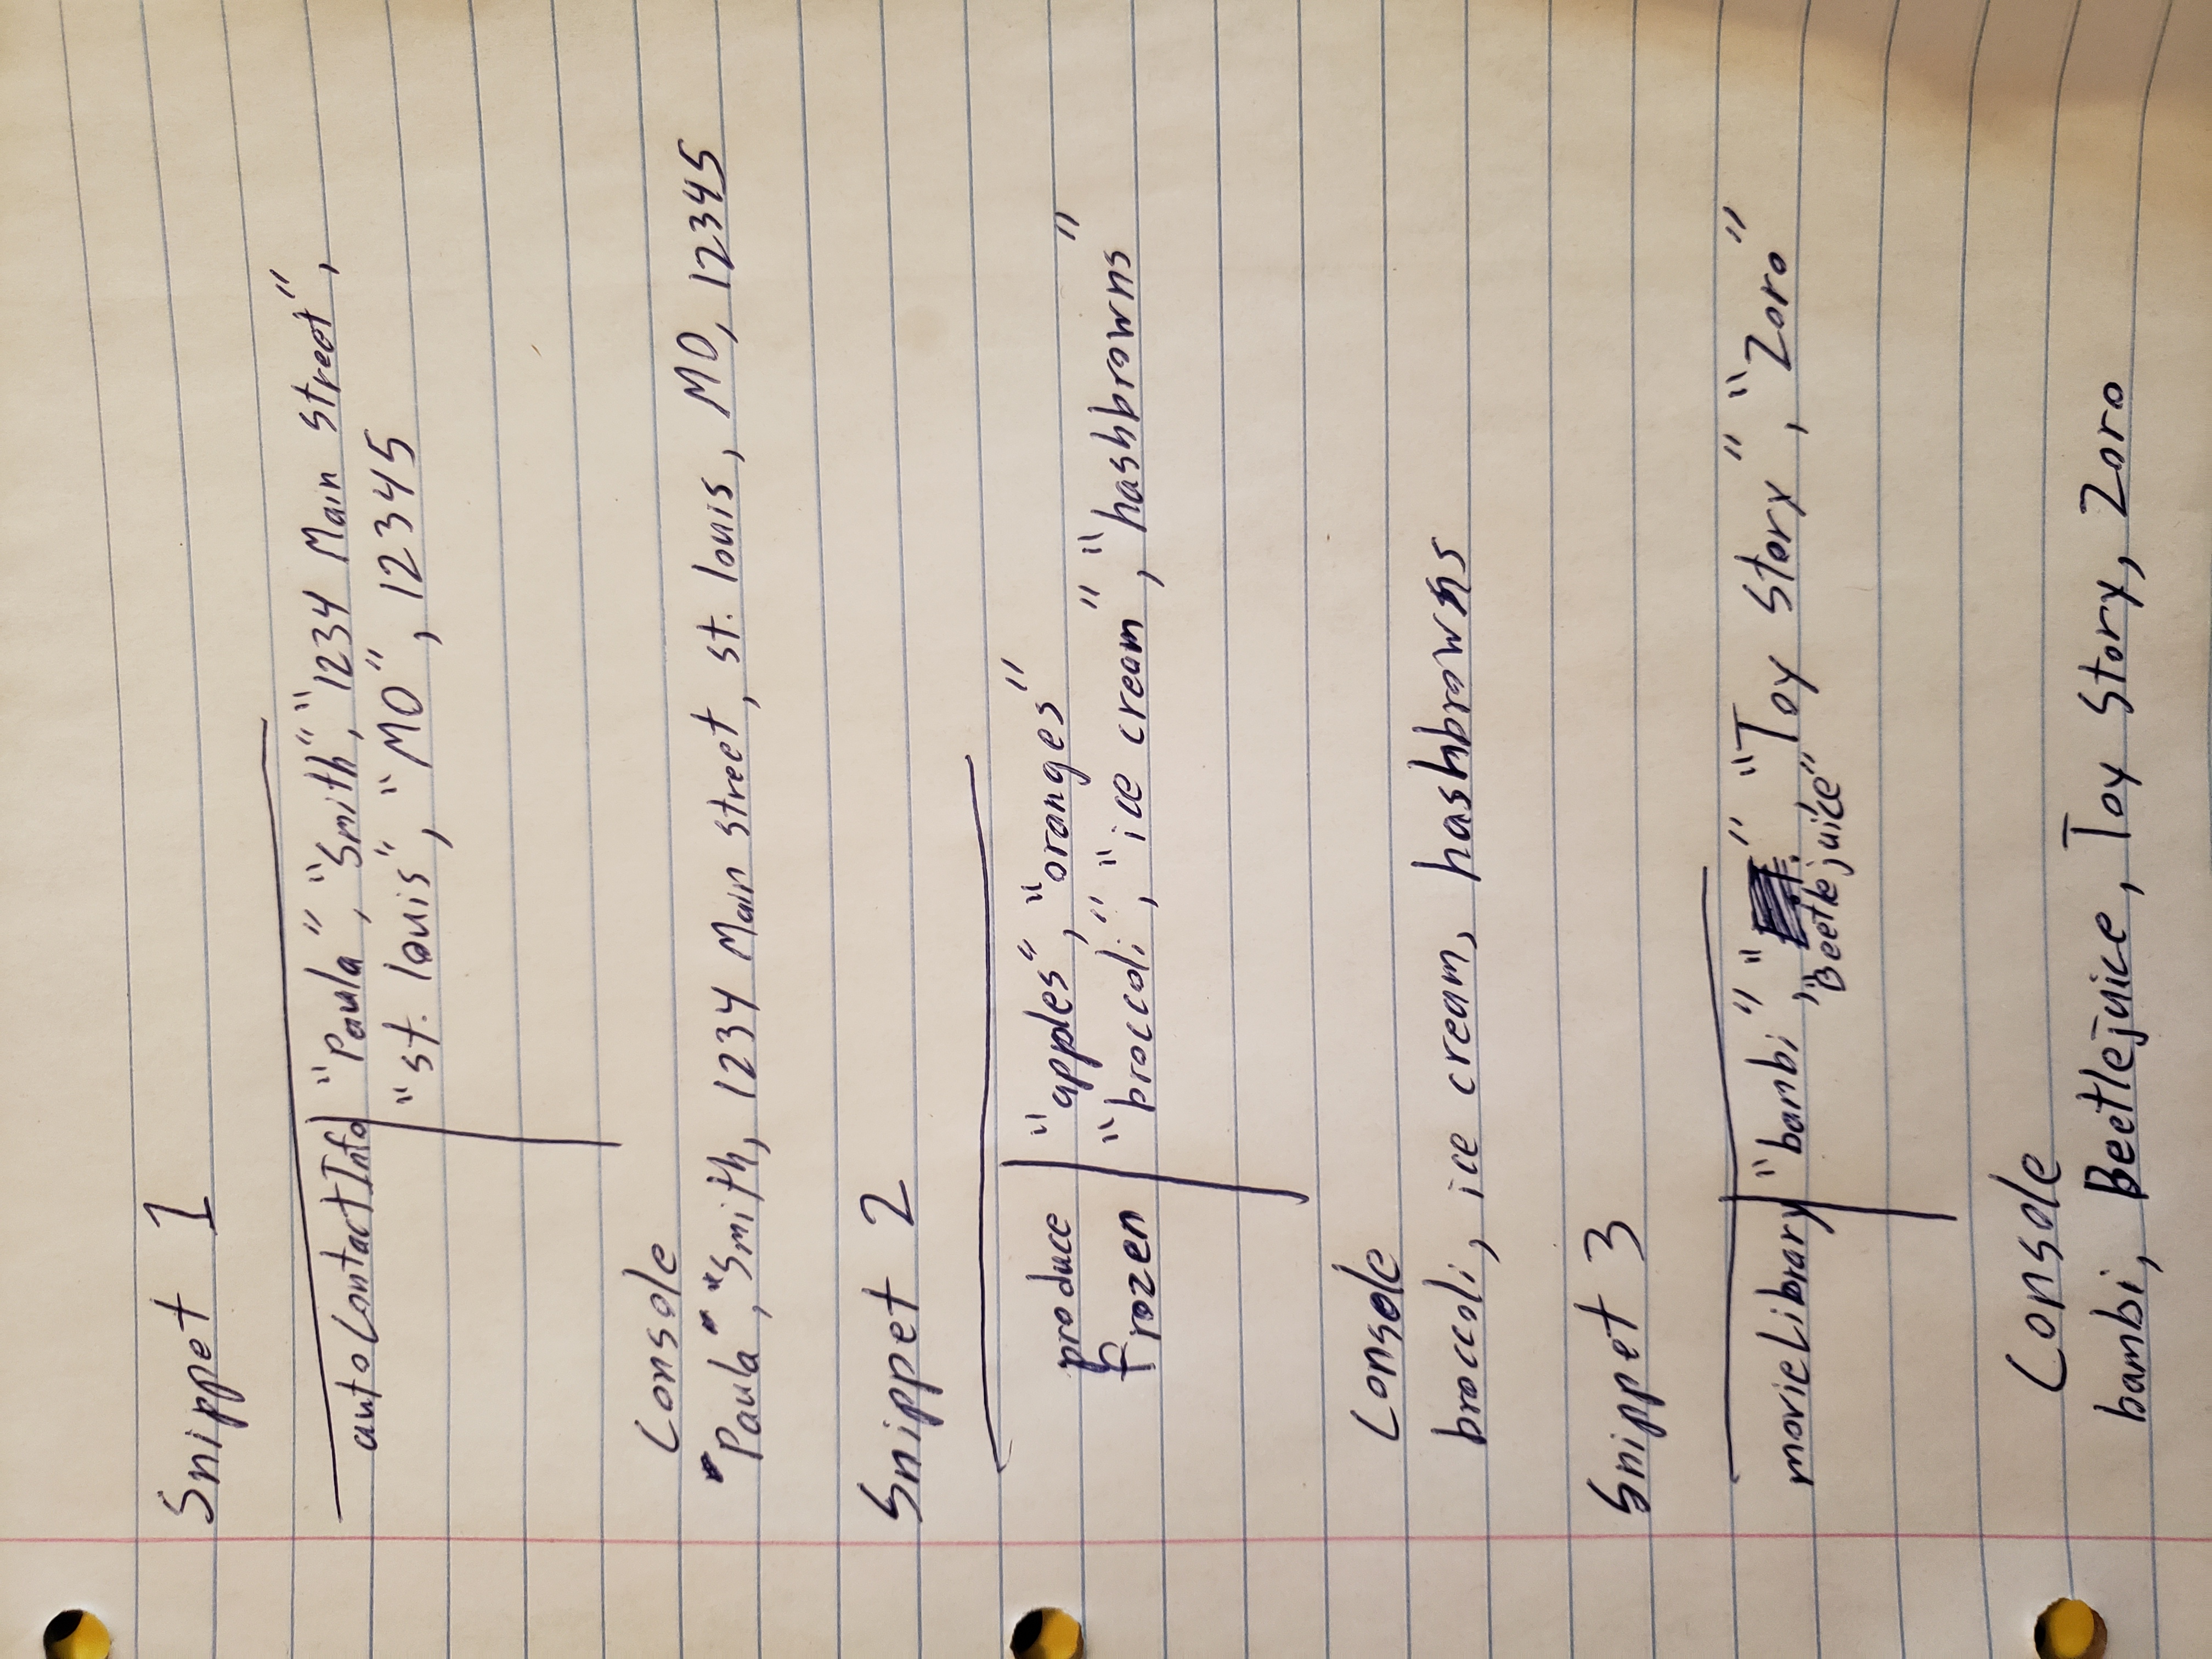 Snippet 1
autoContactInfo "Paula", "Smith", "1234 Main street",
"st. louis", "MO", 12345
Console
"Paula", "Smith, 1234 Main street, st. louis, MO, 12345
Snippet 2
produce "apples", "oranges"
frozen "broccoli", "ice cream", "hashbrowns"
Console
broccoli, ice cream, hashbrowns
Snippet 3
movieLibrary "bambi", " ", "Toy Story", "Zoro"
"Beetlejuice"
Console
bambi, Beetlejuice, Toy Story, Zoro